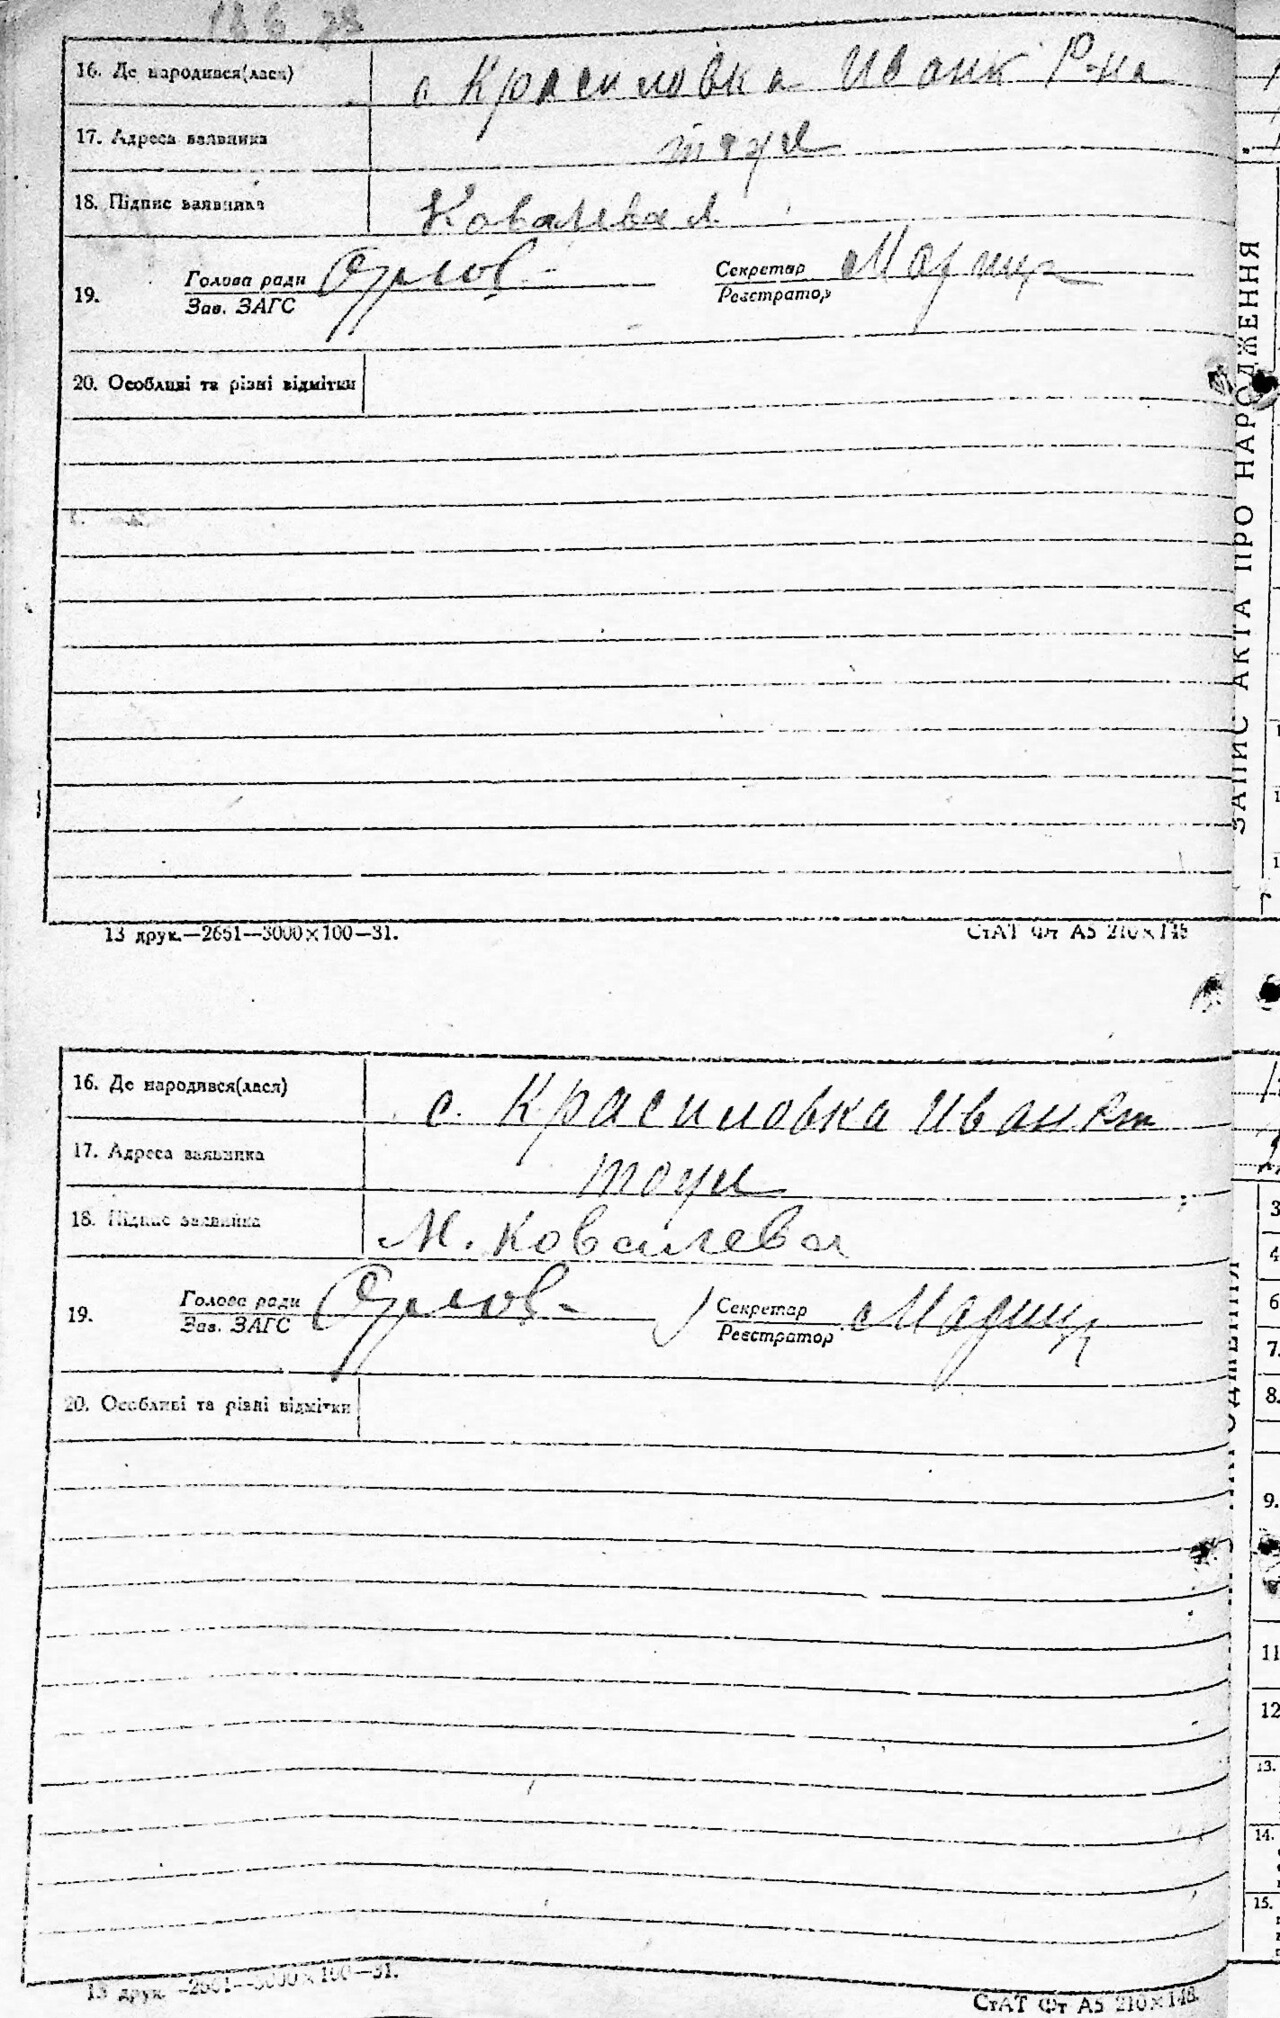 16. Де народився(лася) с Красиловка Иванк Р-на
17. Адреса заявника тоже
18. Підпис заявника Ковалева
19. Голова ради Секретар
Зав. ЗАГС Реєстратор
20. Особливі та різні відмітки
13 друк.—2651—3000×100—31. СтАТ Фт А5 210×148
16. Де народився(лася) с. Красиловка Иванк
17. Адреса заявника тоже
18. Підпис заявника М. Ковалева
19. Голова ради Секретар
Зав. ЗАГС Реєстратор
20. Особливі та різні відмітки
13 друк.—2651—3000×100—31. СтАТ Фт А5 210×148.
ЗАПИС АКТА ПРО НАРОДЖЕННЯ
3
4
6
7.
8.
9.
11
12
13.
14.
15.